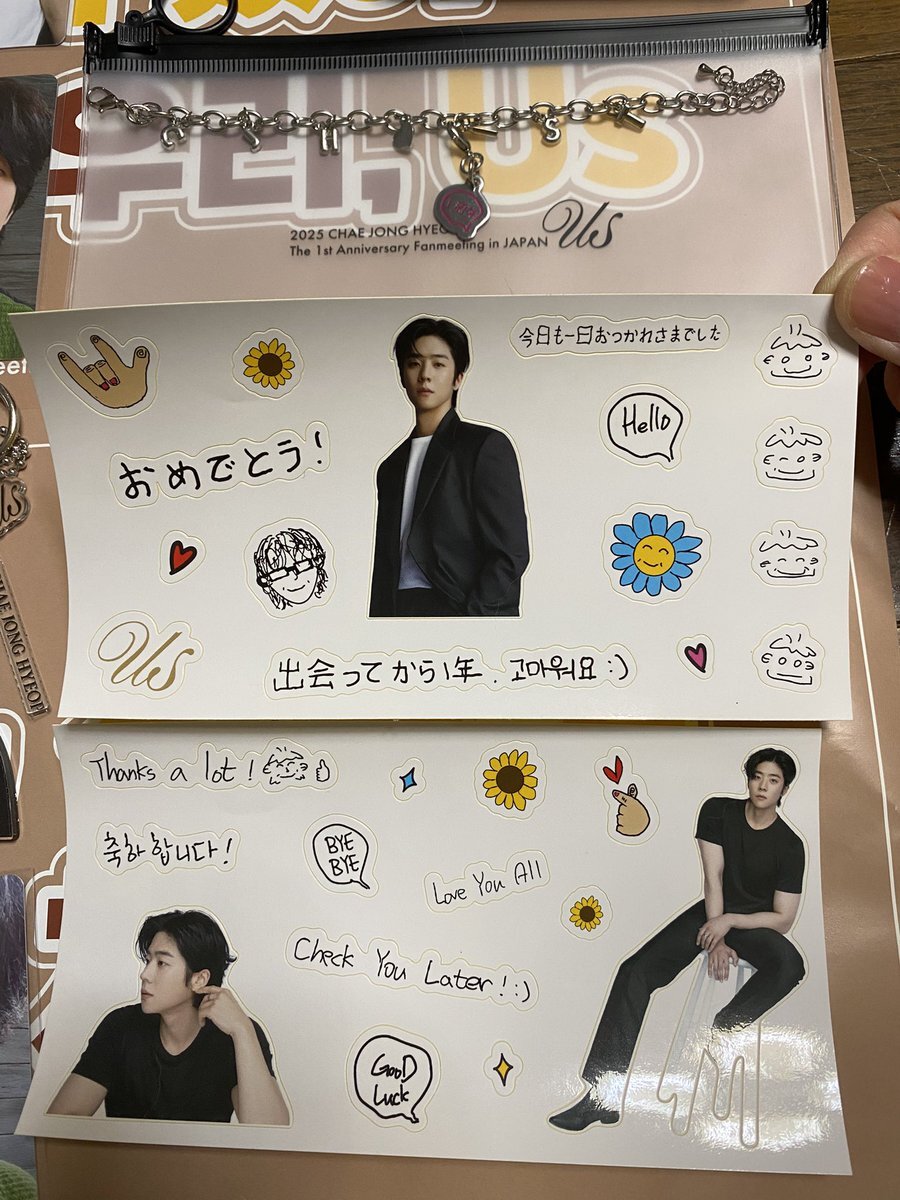 PEI,US
2025 CHAE JONG HYEO
The 1st Anniversary Fanmeeting in JAPAN
Us
今日も一日おつかれさまでした
Hello
おめでとう!
Us
出会ってから1年. 고마워요:)
CHAE JONG HYEOP
Thanks a lot!
축하합니다!
BYE
BYE
Love You All
Check You Later! :)
GOOD
Luck